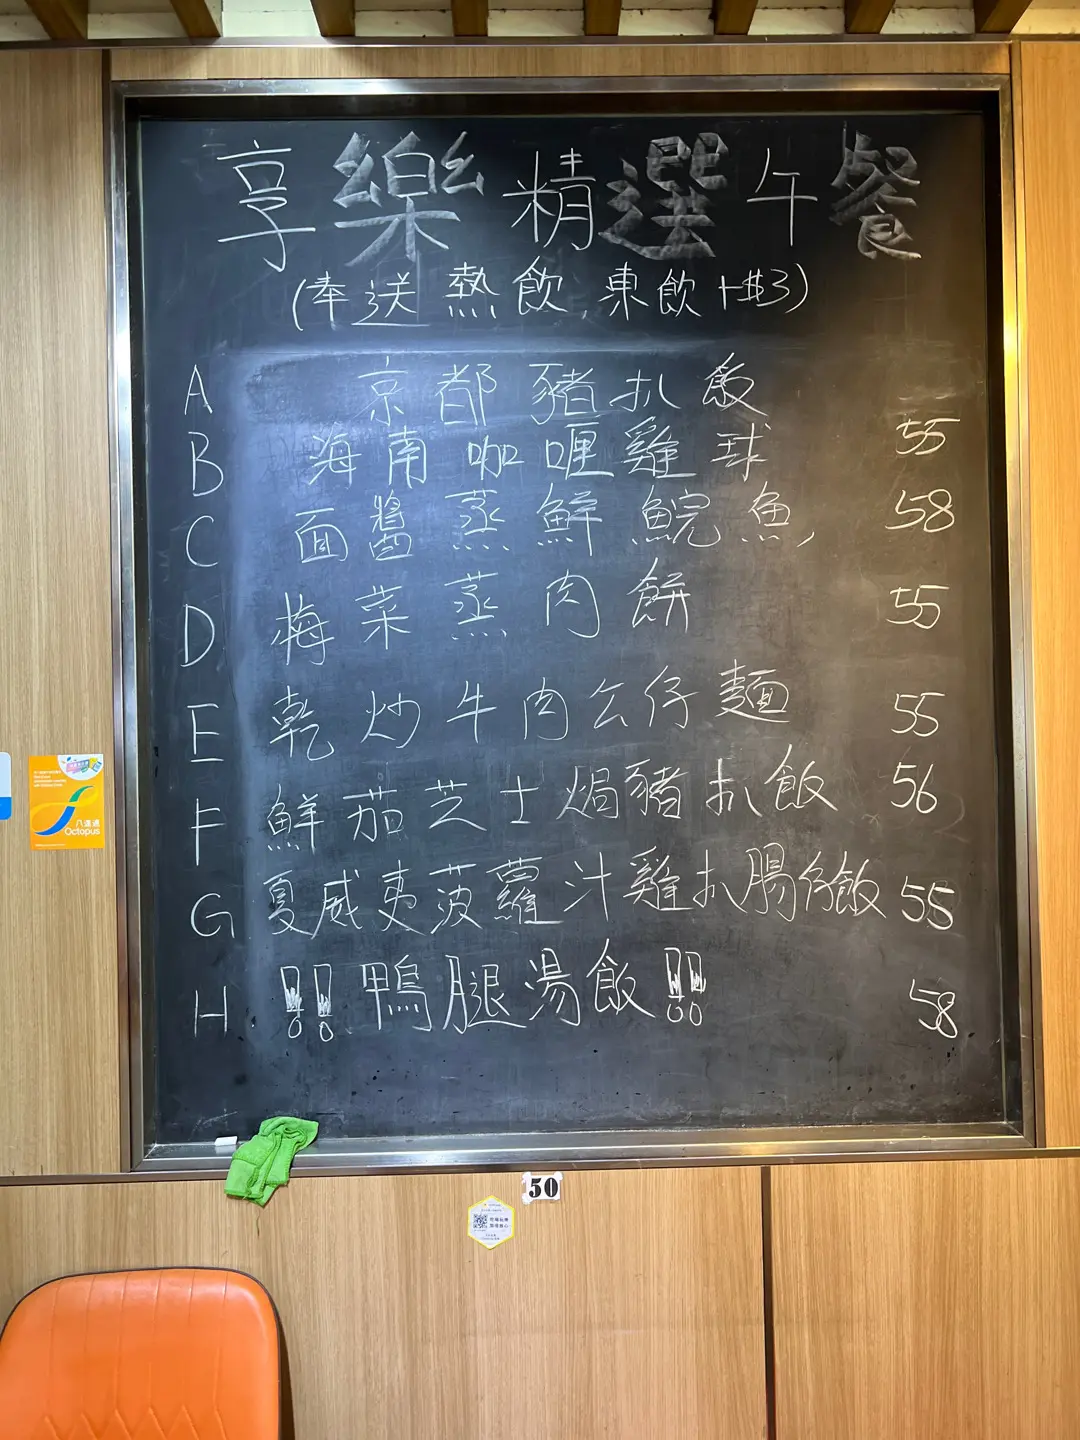 享樂精選午餐
(奉送熱飲,東飲+$3)
A 京都豬扒飯
B 海南咖喱雞球 55
C 面醬蒸鮮鯇魚, 58
D 梅菜蒸肉餅 55
E 乾炒牛肉公仔麵 55
F 鮮茄芝士焗豬扒飯 56
G 夏威夷菠蘿汁雞扒腸仔飯 55
H !! 鴨腿湯飯 !! 58
八達通
Octopus
50